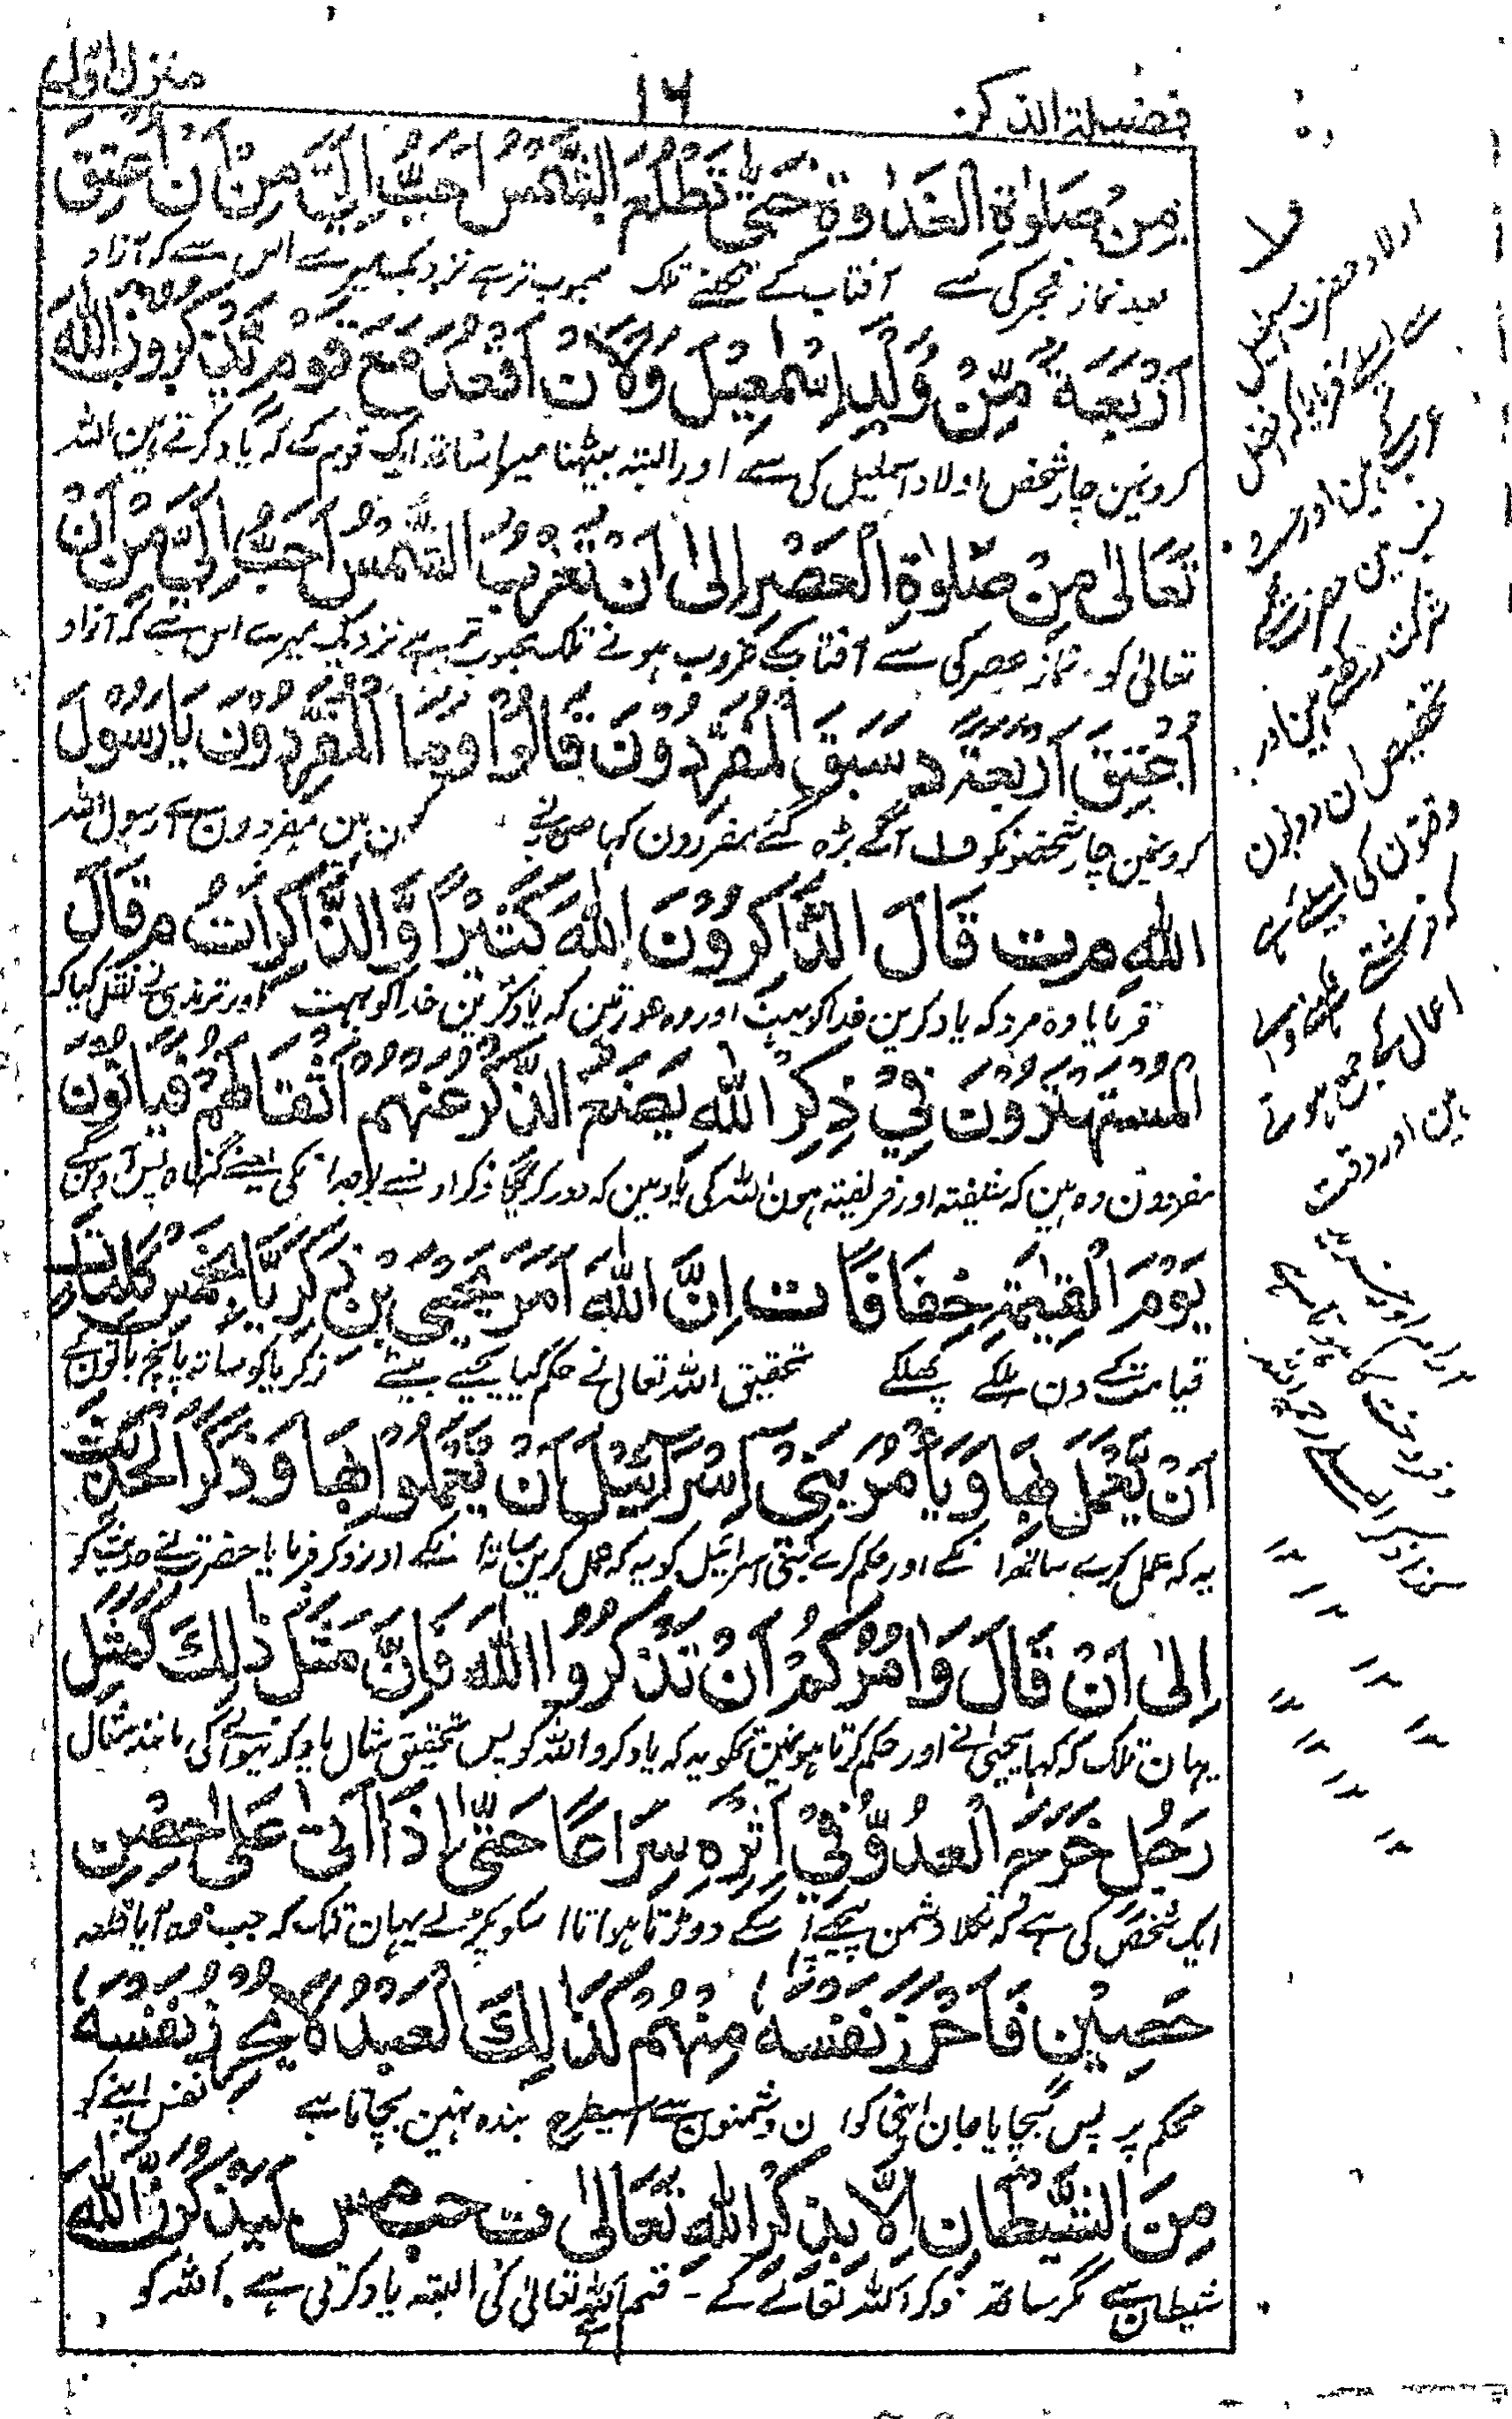 فضیلۃ الذکر
۱۶
منزل اول
مِنْ صَلٰوةِ الْغَدٰوةِ حَتّٰى تَطْلُعَ الشَّمْسُ اَحَبُّ اِلَيَّ مِنْ اَنْ اُعْتِقَ
بعد نماز فجر کی سے آفتاب کے نکلنے تلک محبوب تر ہے نزدیک میرے اس سے کہ آزاد
اَرْبَعَةً مِّنْ وُلْدِ اِسْمٰعِيْلَ وَلَاَنْ اَقْعُدَ مَعَ قَوْمٍ يَّذْكُرُوْنَ اللّٰهَ
کرونمین چار شخص اولاد اسمٰعیل کی سے اور البتہ بیٹھنا میرا ساتھ ایک قوم کے کہ یاد کرتے ہین اللہ
تَعَالىٰ مِنْ صَلٰوةِ الْعَصْرِ اِلىٰ اَنْ تَغْرُبَ الشَّمْسُ اَحَبُّ اِلَيَّ مِنْ اَنْ
تعالیٰ کو نماز عصر کی سے آفتاب کے غروب ہونے تلک محبوب تر ہے نزدیک میرے اس سے کہ آزاد
اُعْتِقَ اَرْبَعَةً د سَبَقَ الْمُفَرِّدُوْنَ قَالُوْا وَمَا الْمُفَرِّدُوْنَ يَا رَسُوْلَ
کرونمین چار شخصونکو ف آگے بڑہ گئے مفردون کہا صحابہ نے کون ہین مفردون اے رسول اللہ
اللّٰهِ م ت قَالَ الذَّاكِرُوْنَ اللّٰهَ كَثِيْرًا وَّالذَّاكِرَاتُ م قَالَ
فرمایا وہ مرد کہ یاد کرین خدا کو بہت اور وہ عورتین کہ یاد کرین خدا کو بہت اور ترمذی نے نقل کیا کہ
الْمُسْتَهْتَرُوْنَ فِيْ ذِكْرِ اللّٰهِ يَضَعُ الذِّكْرُ عَنْهُمْ اَثْقَالَهُمْ فَيَأْتُوْنَ
مفردون وہ ہین کہ شیفتہ اور فریفتہ ہون اللہ کی یاد مین کہ دور کریگا ذکر اونسے بوجھ انکی یعنے گناہ پس آوینگے
يَوْمَ الْقِيٰمَةِ خِفَافًا ت اِنَّ اللّٰهَ اَمَرَ يَحْيَى بْنَ زَكَرِيَّا بِخَمْسِ كَلِمَاتٍ
قیامت کے دن ہلکے پھلکے تحقیق اللہ تعالی نے حکم کیا یحییٰ بیٹے زکریا کو ساتھ پانچ باتون کے
اَنْ يَّعْمَلَ بِهَا وَيَأْمُرَ بَنِيْ اِسْرَآئِيْلَ اَنْ يَّعْمَلُوْا بِهَا وَذَكَرَ الْحَدِيْثَ
یہ کہ عمل کرے ساتھ انکے اور حکم کرے بنی اسرائیل کو یہ کہ عمل کرین ساتھ انکے اور ذکر فرمایا حضرت نے حدیث کو
اِلىٰ اَنْ قَالَ وَاٰمُرُكُمْ اَنْ تَذْكُرُوا اللّٰهَ فَاِنَّ مَثَلَ ذٰلِكَ كَمَثَلِ
یہان تلک کہ کہا یحییٰ نے اور حکم کرتا ہونمین تمکو یہ کہ یاد کرو اللہ کو پس تحقیق مثال یاد کرنیوالے کی مانند مثال
رَجُلٍ خَرَجَ الْعَدُوُّ فِيْ اَثَرِهٖ سِرَاعًا حَتّٰى اِذَا اَتىٰ عَلىٰ حِصْنٍ
ایک شخص کی ہے کہ نکلا دشمن پیچھے اسکے دوڑتا ہوا تا اسکو پکڑے یہان تلک کہ جب وہ آیا قلعہ
حَصِيْنٍ فَاَحْرَزَ نَفْسَهٗ مِنْهُمْ كَذٰلِكَ الْعَبْدُ لَا يُحْرِزُ نَفْسَهٗ
محکم پر پس بچایا جان اپنی کو ان دشمنون سے اسیطرح بندہ نہین بچاتا ہے نفس اپنے کو
مِنَ الشَّيْطَانِ اِلَّا بِذِكْرِ اللّٰهِ تَعَالىٰ ت حب مس لَيَذْكُرَنَّ اللّٰهَ
شیطان سے مگر ساتھ ذکر اللہ تعالے کے - قسم اللہ تعالیٰ کی البتہ یاد کرتی ہے اللہ کو
ف
اولاد حضرت اسمٰعیل
کے اسلیے فرمایا کہ افضل
عرب ہین اور
تخصیص ان دونون
وقتون کی اسلیے ہے
کہ فرشتے
اعمال کے جمع ہوتے
ہین اور وقت